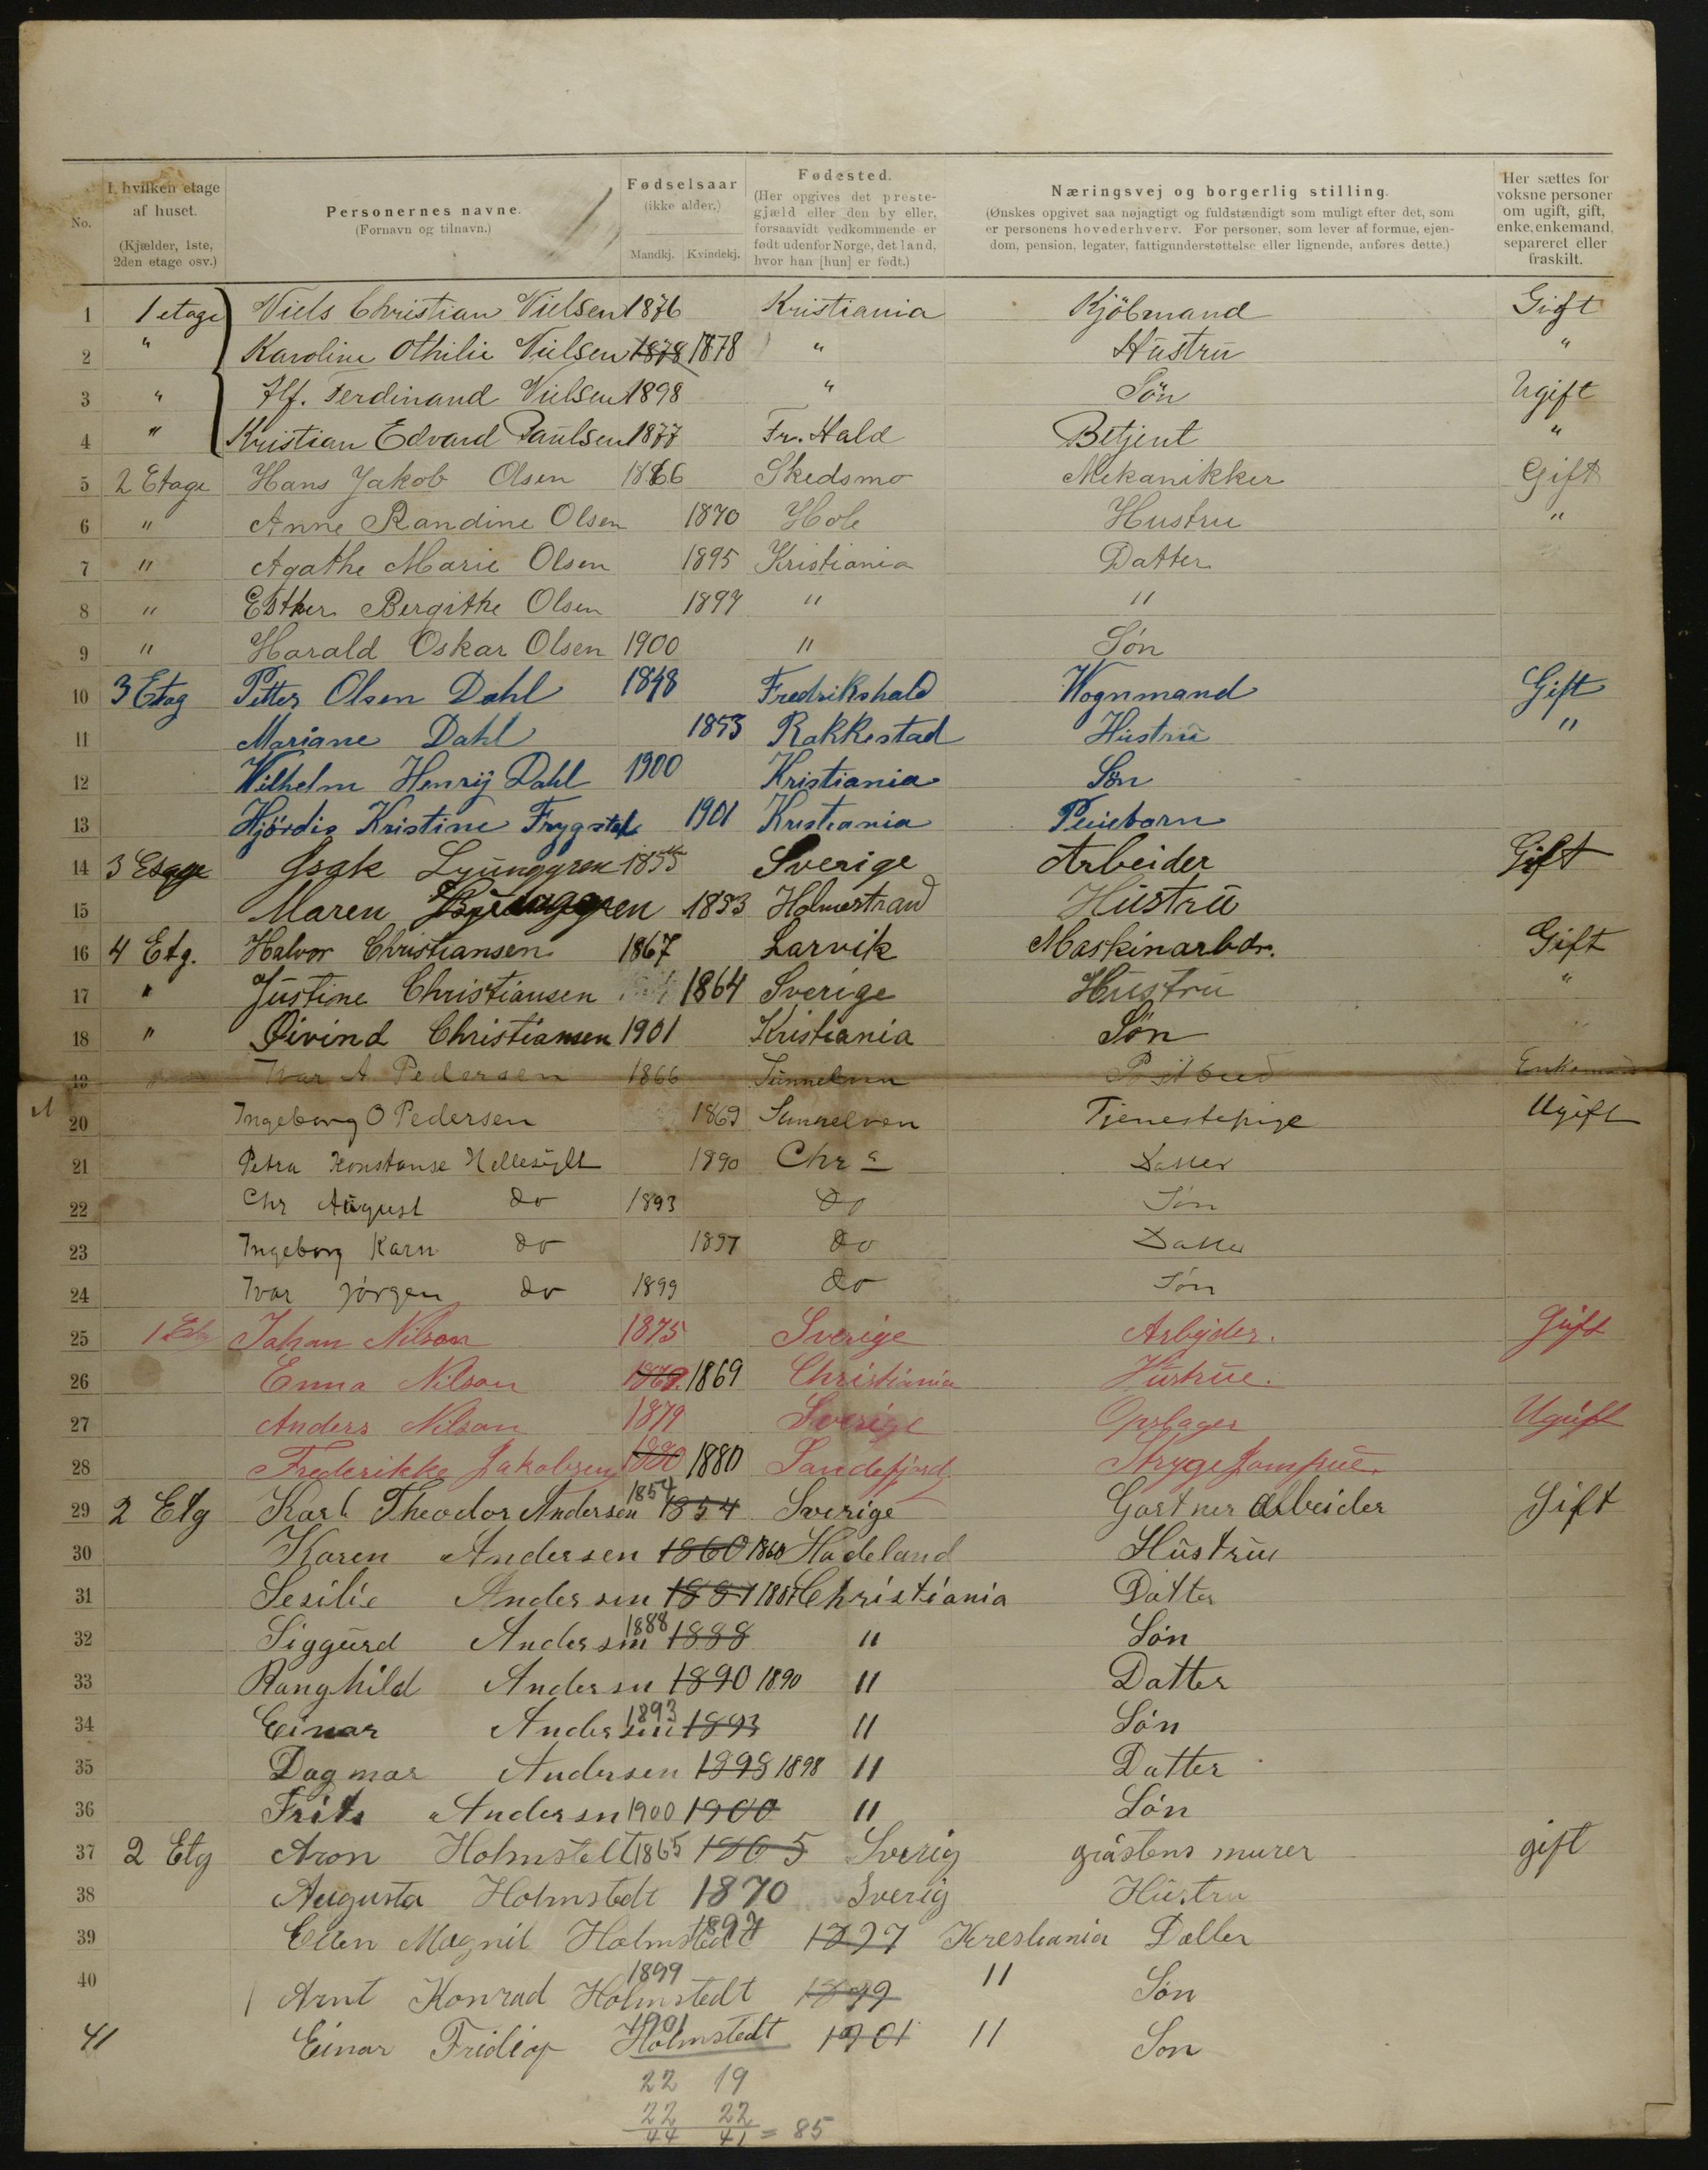 No.
I hvilken etage af huset. (Kjælder, 1ste, 2den etage osv.)
Personernes navne. (Fornavn og tilnavn.)
Fødselsaar (ikke alder.) Mandkj. Kvindekj.
Fødested. (Her opgives det prestegjæld eller den by eller, forsaavidt vedkommende er født udenfor Norge, det land, hvor han [hun] er født.)
Næringsvej og borgerlig stilling. (Ønskes opgivet saa nøjagtigt og fuldstændigt som muligt efter det, som er personens hovederhverv. For personer, som lever af formue, ejendom, pension, legater, fattigunderstøttelse eller lignende, anføres dette.)
Her sættes for voksne personer om ugift, gift, enke, enkemand, separeret eller fraskilt.
1 1 etage Niels Christian Nielsen 1876 Kristiania Kjöbmand Gift
2 " Karoline Othilie Nielsen 1878 1878 " Hustru "
3 " Alf. Ferdinand Nielsen 1898 " Sön Ugift
4 " Kristian Edvard Paulsen 1877 Fr. Hald Betjent "
5 2 Etage Hans Jakob Olsen 1866 Skedsmo Mekanikker Gift
6 " Anne Randine Olsen 1870 Hole Hustru "
7 " Agathe Marie Olsen 1895 Kristiania Datter
8 " Esther Bergithe Olsen 1897 " "
9 " Harald Oskar Olsen 1900 " Søn
10 3 Etag Petter Olsen Dahl 1848 Fredrikshald Wognmand Gift
11 Mariane Dahl 1853 Rakkestad Hustru "
12 Wilhelm Henrij Dahl 1900 Kristiania Sön
13 Hjördis Kristine 1901 Kristiania Pleiebarn
14 3 Etage Isak Ljunggren 1855 Sverige Arbeider Gift
15 Maren Ljunggren 1853 Holmestrand Hustru
16 4 Etg. Halvor Christiansen 1867 Larvik Maskinarbdr. Gift
17 " Justine Christiansen 1864 Sverige Hustru "
18 " Øivind Christiansen 1901 Kristiania Søn "
19 Ivar A. Pedersen 1866 Postbud Enkemand
20 Ingeborg O Pedersen 1869 Sunnelven Tjenestepige Ugift
21 Petra Konstanse Hellesylt 1890 Chr a Datter
22 Chr August do 1893 do Søn
23 Ingeborg Karn do 1897 do Datter
24 Ivar Jörgen do 1899 do Søn
25 1 Etg Johan Nilson 1875 Sverige Arbijder. Gift
26 Enna Nilson 1869 1869 Christiania Hustrue.
27 Anders Nilson 1879 Sverige Opslager Ugift
28 Frederikke Jakobsen 1880 1880 Sandefjord Strygejomfrue.
29 2 Etg Karl Theodor Andersen 1854 1854 Sverige Gartner Arbeider Gift
30 Karen Andersen 1860 1860 Hadeland Hustru
31 Sesilie Andersen 1887 1887 Christiania Datter
32 Siggurd Andersen 1888 1888 " Søn
33 Ranghild Andersen 1890 1890 " Datter
34 Einar Andersen 1893 1893 " Søn
35 Dagmar Andersen 1898 1898 " Datter
36 Frits Andersen 1900 1900 " Søn
37 2 Etg Aron Holmstedt 1865 1865 Sverig gråstens murer gift
38 Augusta Holmstedt 1870 Sverig Hustru
39 Ellen Magnil Holmstedt 1897 1897 Krestiania Datter
40 Arnt Konrad Holmstedt 1899 1899 " Søn
41 Einar Fridiop Holmstedt 1901 1901 " Son
22 19
22 22
44 41 = 85